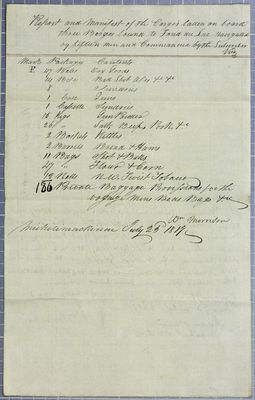 Report and Manifest of the Cargo laden on board
three Barges bound to Fond du Lac Navigated
by fifteen men and Commanded by the Subscriber
Marks Packages Contents
27 Bales Dry Goods
Shot
8 Sundries
1 Case Guns
1 Cassette Sundries
16 Kegs Gun Powder
26 " Salt Beef & Pork &c
2 Baskets Kettles
2 Barrels Bread & Hams
11 Bags Shot & Balls
" Flour & Corn
12 Rolls N.W. Twist Tobacco
186 Private Baggage Provisions for the
voyage Mens Bags &c
Wm Morrison
Michilimackinac July 23d 181